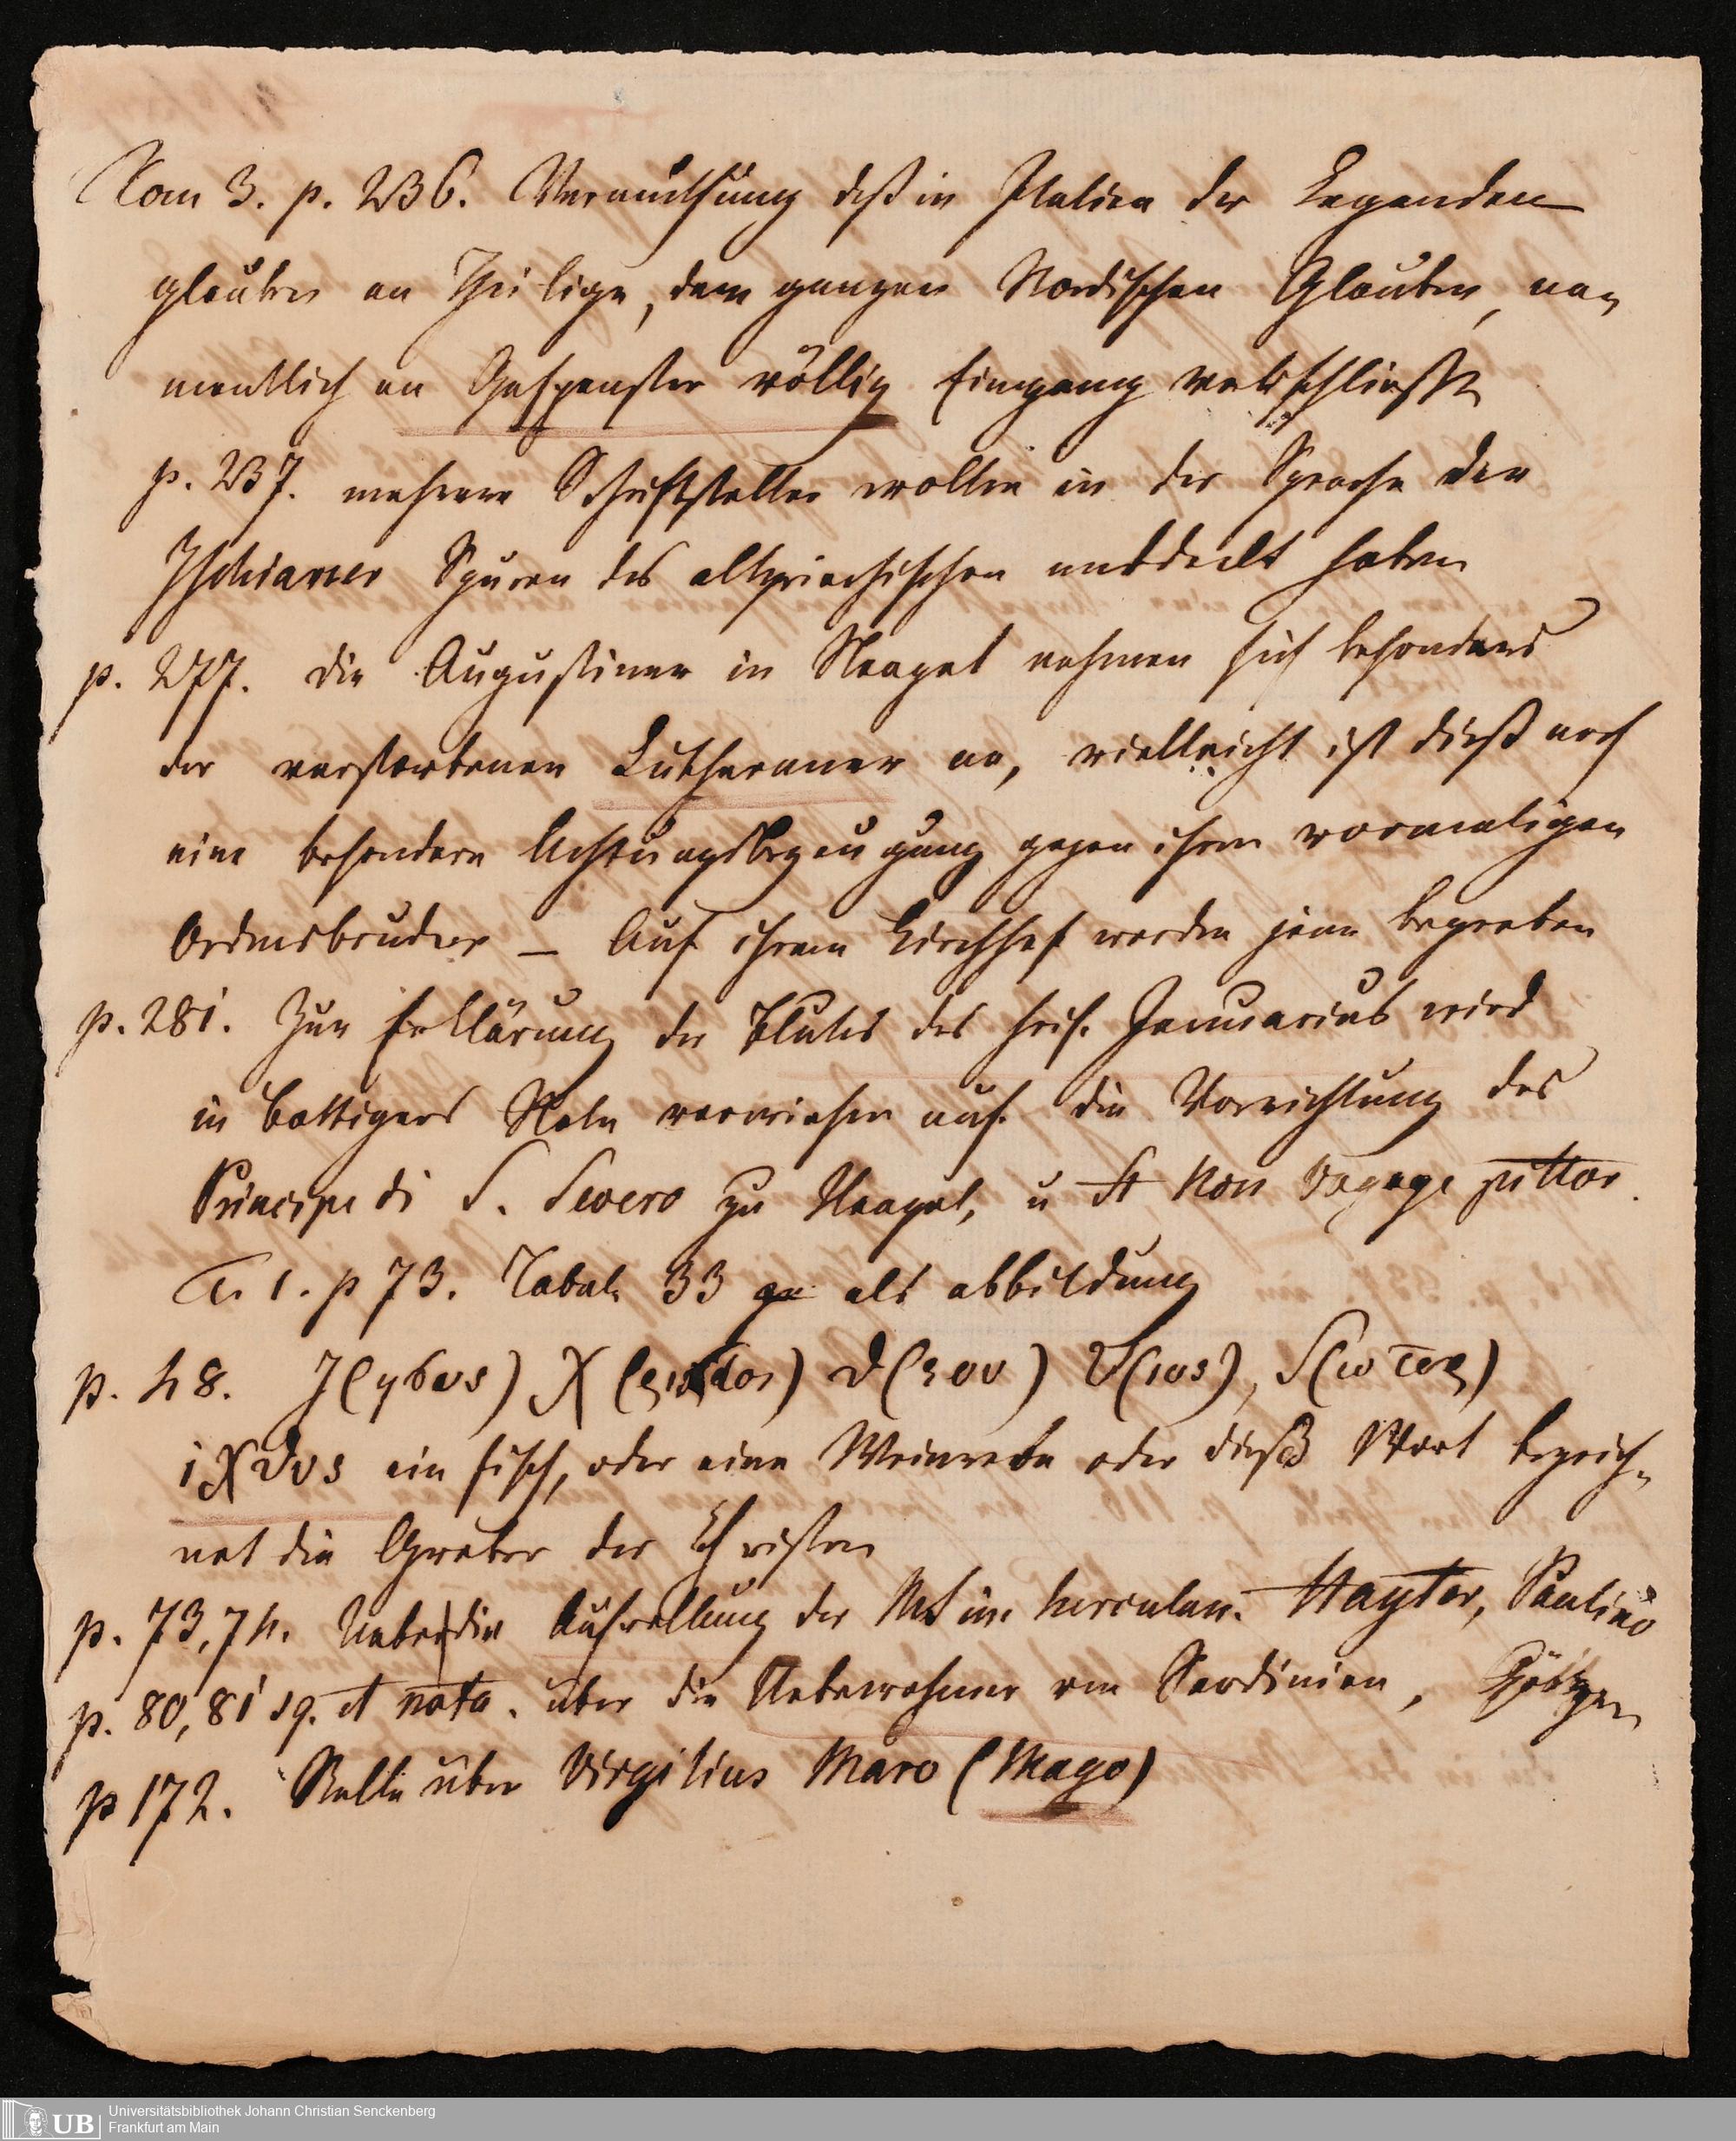 Tom 3. p. 236. Vermuthung daß in Italien der Legenden
glauben an Heilige, dem ganzen Nordischen Glauben, na-
mentlich an Gespenster völlig Eingang verschließt
p. 237. mehrere Schriftsteller wollen in der Sprache der
Ischianer Spuren des altgriechischen entdeckt haben
p. 277. die Augustiner in Neapel nehmen sich besonders
der verstorbenen Lutheraner an, vielleicht ist dieß noch
eine besondere Achtungsbezeugung gegen ihren vormaligen
Ordensbruder – Auf ihrem Kirchhof werden jene begraben
p. 281. Zur Erklärung des Blutes des heil. Januarius wird
in Bottigers Note verwiesen auf die Vorrichtung des
Principe di S. Severo zu Neapel, u St Non voyage pittor.
T. 1. p 73. Tabul. 33 als abbildung
p. 48. I(ησους) Χ(ριστος) Θ(εου) Υ(ιος), Σ(ωτηρ)
ιχθυς ein Fisch, oder eine Weinrebe oder dieß Wort bezeich-
net die Gräber der Christen
p. 73, 74. Ueber die Aufrollung der Mst im herculan. Hayter, Paulino
p. 80, 81 sq. et nota. über die Urbewohner von Sardinien, Götzen
p 172. Stelle über Virgilius Maro (Mago)
UB
Universitätsbibliothek Johann Christian Senckenberg
Frankfurt am Main